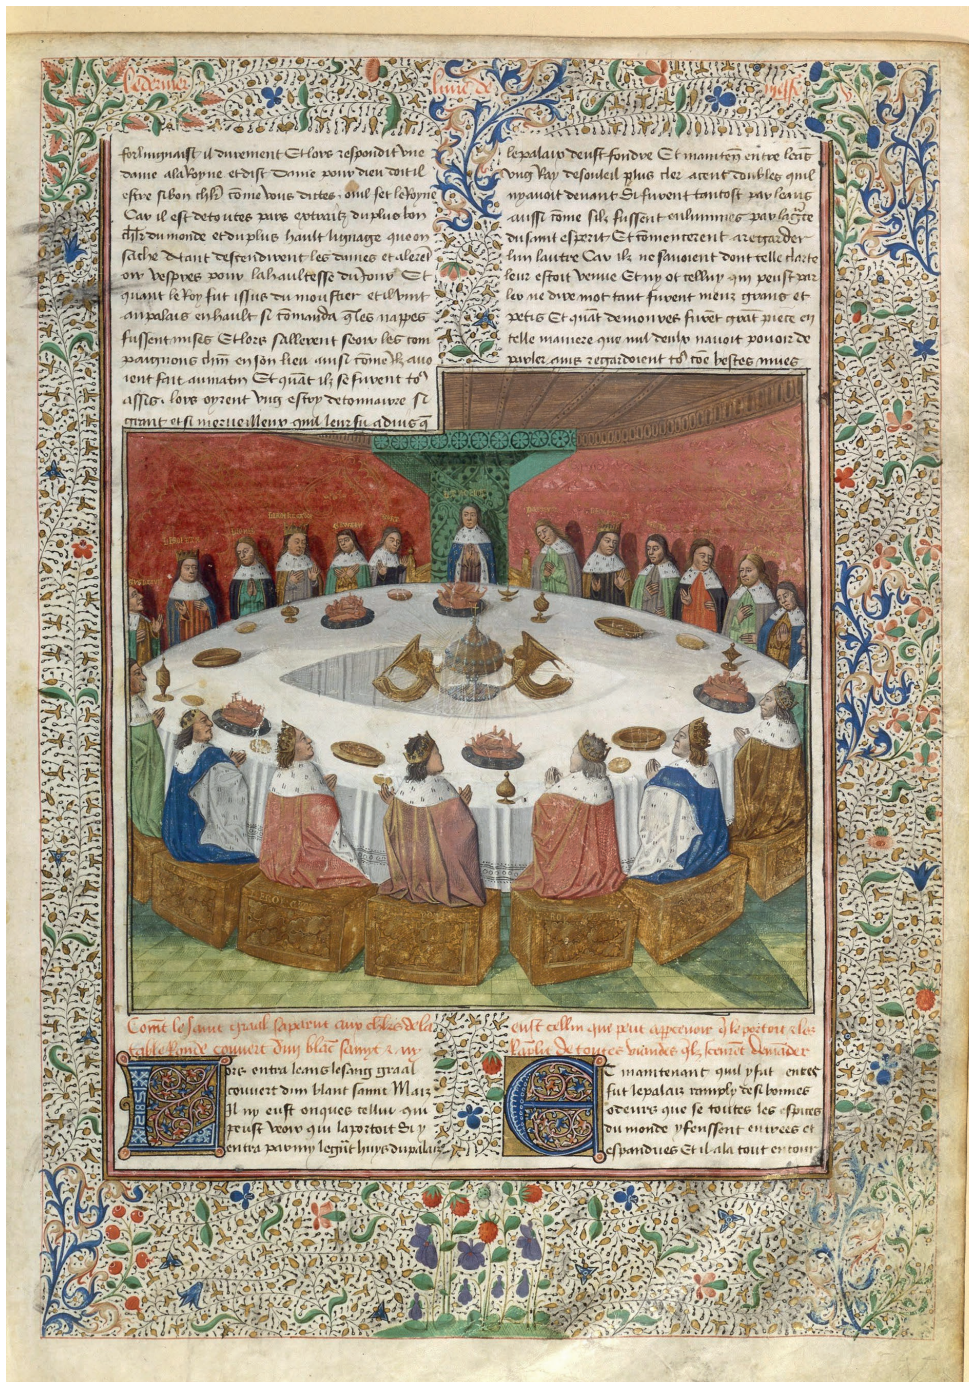 le dernier
livre de
messe
V
forlignaist il durement Et lors respondit vne
dame ala Royne et dist Dame pour dieu doit il
estre si bon chlr come vous dictes ouil fet le Royne
Car il est de toutes pars extraitz du plus bon
chlr du monde et du plus hault lignage que on
sache Atant descendirent les dames et alerent
oir vespres pour la haultesse du Jour Et
quant le Roy fut issus du moustier et il vint
au palais en hault si comanda q les nappes
fussent mises Et lors sallerent seoir les com
paignons chun en son lieu aussi come ilz auo
ient fait au matin Et quat ilz se furent to9
assis lors oyrent vng estoy de tonnairre si
grant et si merueilleux quil leur fu aduis q
le palaix deust fondre Et mainten entre leas
vng Ray de souleil plus cler a cent doubles quil
ny auoit deuant Si furent tantost par leans
aussi come silz fussent enlumines par la gce
du saint esperit Et comencerent a regarder
lun lautre Car ilz ne sauoient dont telle clarte
leur estoit venue Et ny ot celluy qui peust par
ler ne dire mot tant furent mieux grans et
petis Et quat demoures furet grat piece en
telle maniere que nul deulx nauoit pouoir de
parler ains regardoient to9 coe bestes mues
Comt le saint graal saparut aux chlrs de la
table Ronde couuert dun blac samyt z ny
eust cellui que peut apperceuoir q le portoit z lor
Raplit de toutes viandes qlz sceurent demader
Lors entra leans le saing graal
couuert dun blant samit Mais
Il ny eust onques cellui qui
peust veoir qui la portoit Si y
entra parmy le gnt huys du palaiz
Et maintenant quil y fut entes
fut le palaiz ramply de si bonnes
odeurs que se toutes les espices
du monde y feussent entrees et
espandues Et il ala tout entour